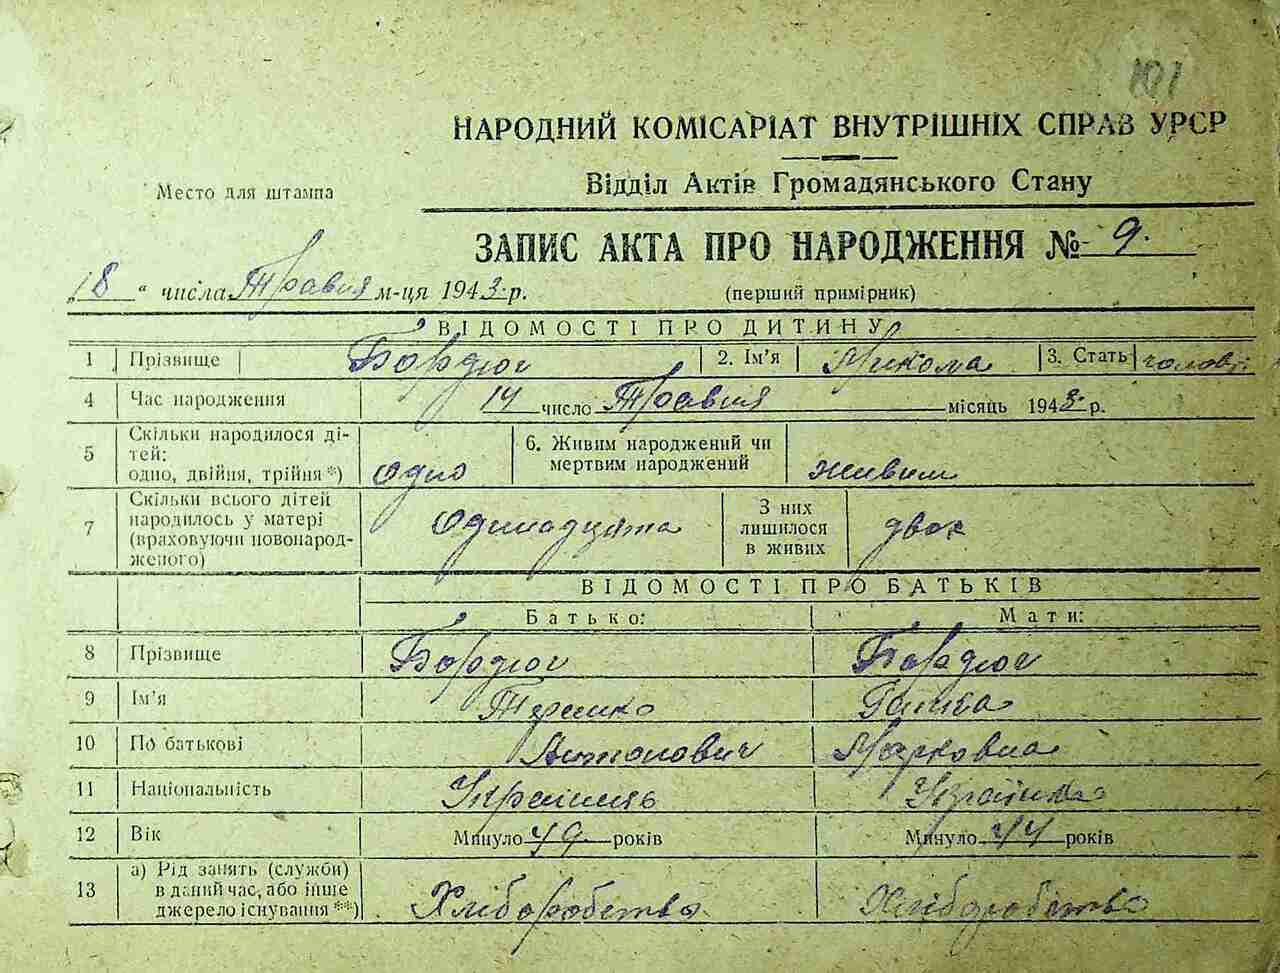 101
НАРОДНИЙ КОМІСАРІАТ ВНУТРІШНІХ СПРАВ УРСР
Место для штампа
Відділ Актів Громадянського Стану
ЗАПИС АКТА ПРО НАРОДЖЕННЯ № 9.
„18 " числа Травня м-ця 1943 р.
(перший примірник)
ВІДОМОСТІ ПРО ДИТИНУ
1 Прізвище Бордюг 2. Ім'я Микола 3. Стать чолові
4 Час народження 14 число Травня місяць 1943 р.
5 Скільки народилося ді-
тей:
одно, двійня, трійня *) одно
6. Живим народжений чи
мертвим народжений живим
7 Скільки всього дітей
народилось у матері
(враховуючи новонарод-
женого) одинадцята
З них
лишилося
в живих двох
ВІДОМОСТІ ПРО БАТЬКІВ
Батько: Мати:
8 Прізвище Бордюг Бордюг
9 Ім'я Терешко Ганна
10 По батькові Антонович Марковна
11 Національність Українець Українка
12 Вік Минуло 49 років Минуло 44 років
13 а) Рід занять (служби)
в даний час, або інше
джерело існування **) Хліборобство Хліборобство